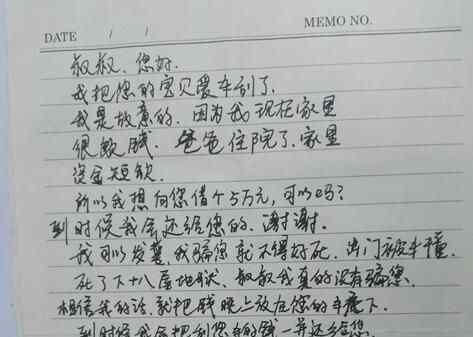 DATE / / MEMO NO.
叔叔、您好.
我把您的宝贝爱车刮了.
我是故意的. 因为我现在家里
很缺钱. 爸爸住院了、家里
资金短缺.
所以我想向您借个5万元,可以吗?
到时候我会还给您的. 谢谢.
我可以发誓,我骗您就不得好死. 出门被车撞.
死了下十八层地狱、叔叔我真的没有骗您.
相信我的话、就把钱晚上放在您的车底下.
到时候我会把刮车的钱一并还给您.